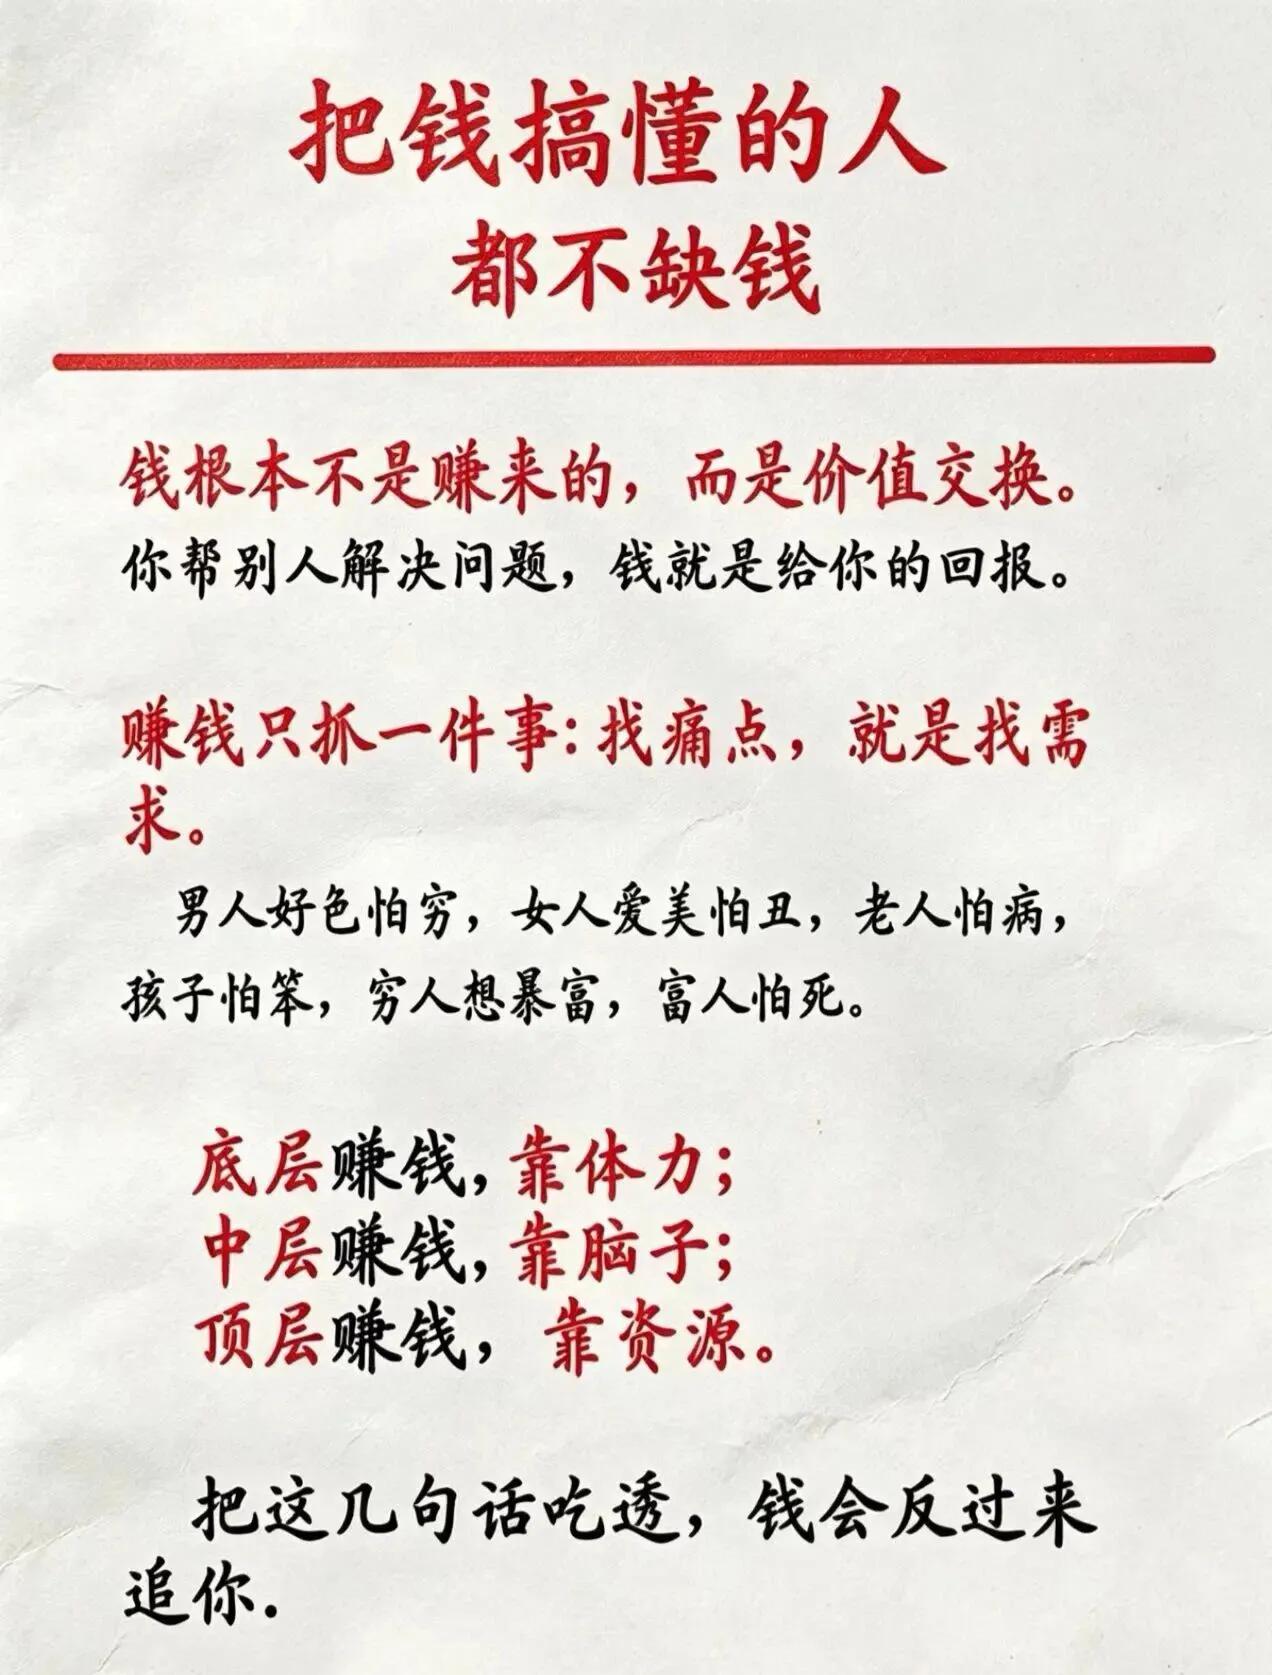 把钱搞懂的人
都不缺钱
钱根本不是赚来的，而是价值交换。
你帮别人解决问题，钱就是给你的回报。
赚钱只抓一件事：找痛点，就是找需
求。
男人好色怕穷，女人爱美怕丑，老人怕病，
孩子怕笨，穷人想暴富，富人怕死。
底层赚钱，靠体力；
中层赚钱，靠脑子；
顶层赚钱，靠资源。
把这几句话吃透，钱会反过来
追你.